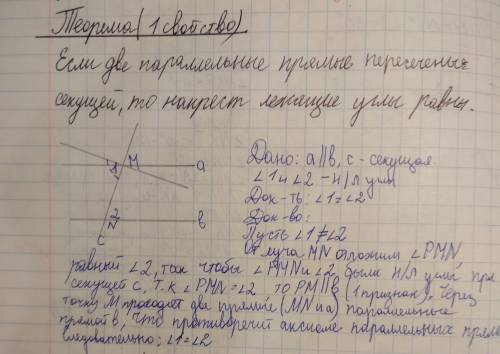 Теорема (1 свойство)
Если две параллельные прямые пересечены
секущей, то накрест лежащие углы равны.
1 M a
2 N b
c
Дано: a||b, c - секущая
∠1 и ∠2 - н/л углы
Док-ть: ∠1=∠2
Док-во:
Пусть ∠1≠∠2
От луча MN отложим ∠PMN,
равный ∠2, так чтобы ∠PMN и ∠2 были н/л углы, при
секущей c, т.к ∠PMN=∠2, то PM||b (1 признак). Через
точку M проходят две прямые (MN и a) параллельные
прямой b, что противоречит аксиоме параллельных прямых
следовательно: ∠1=∠2